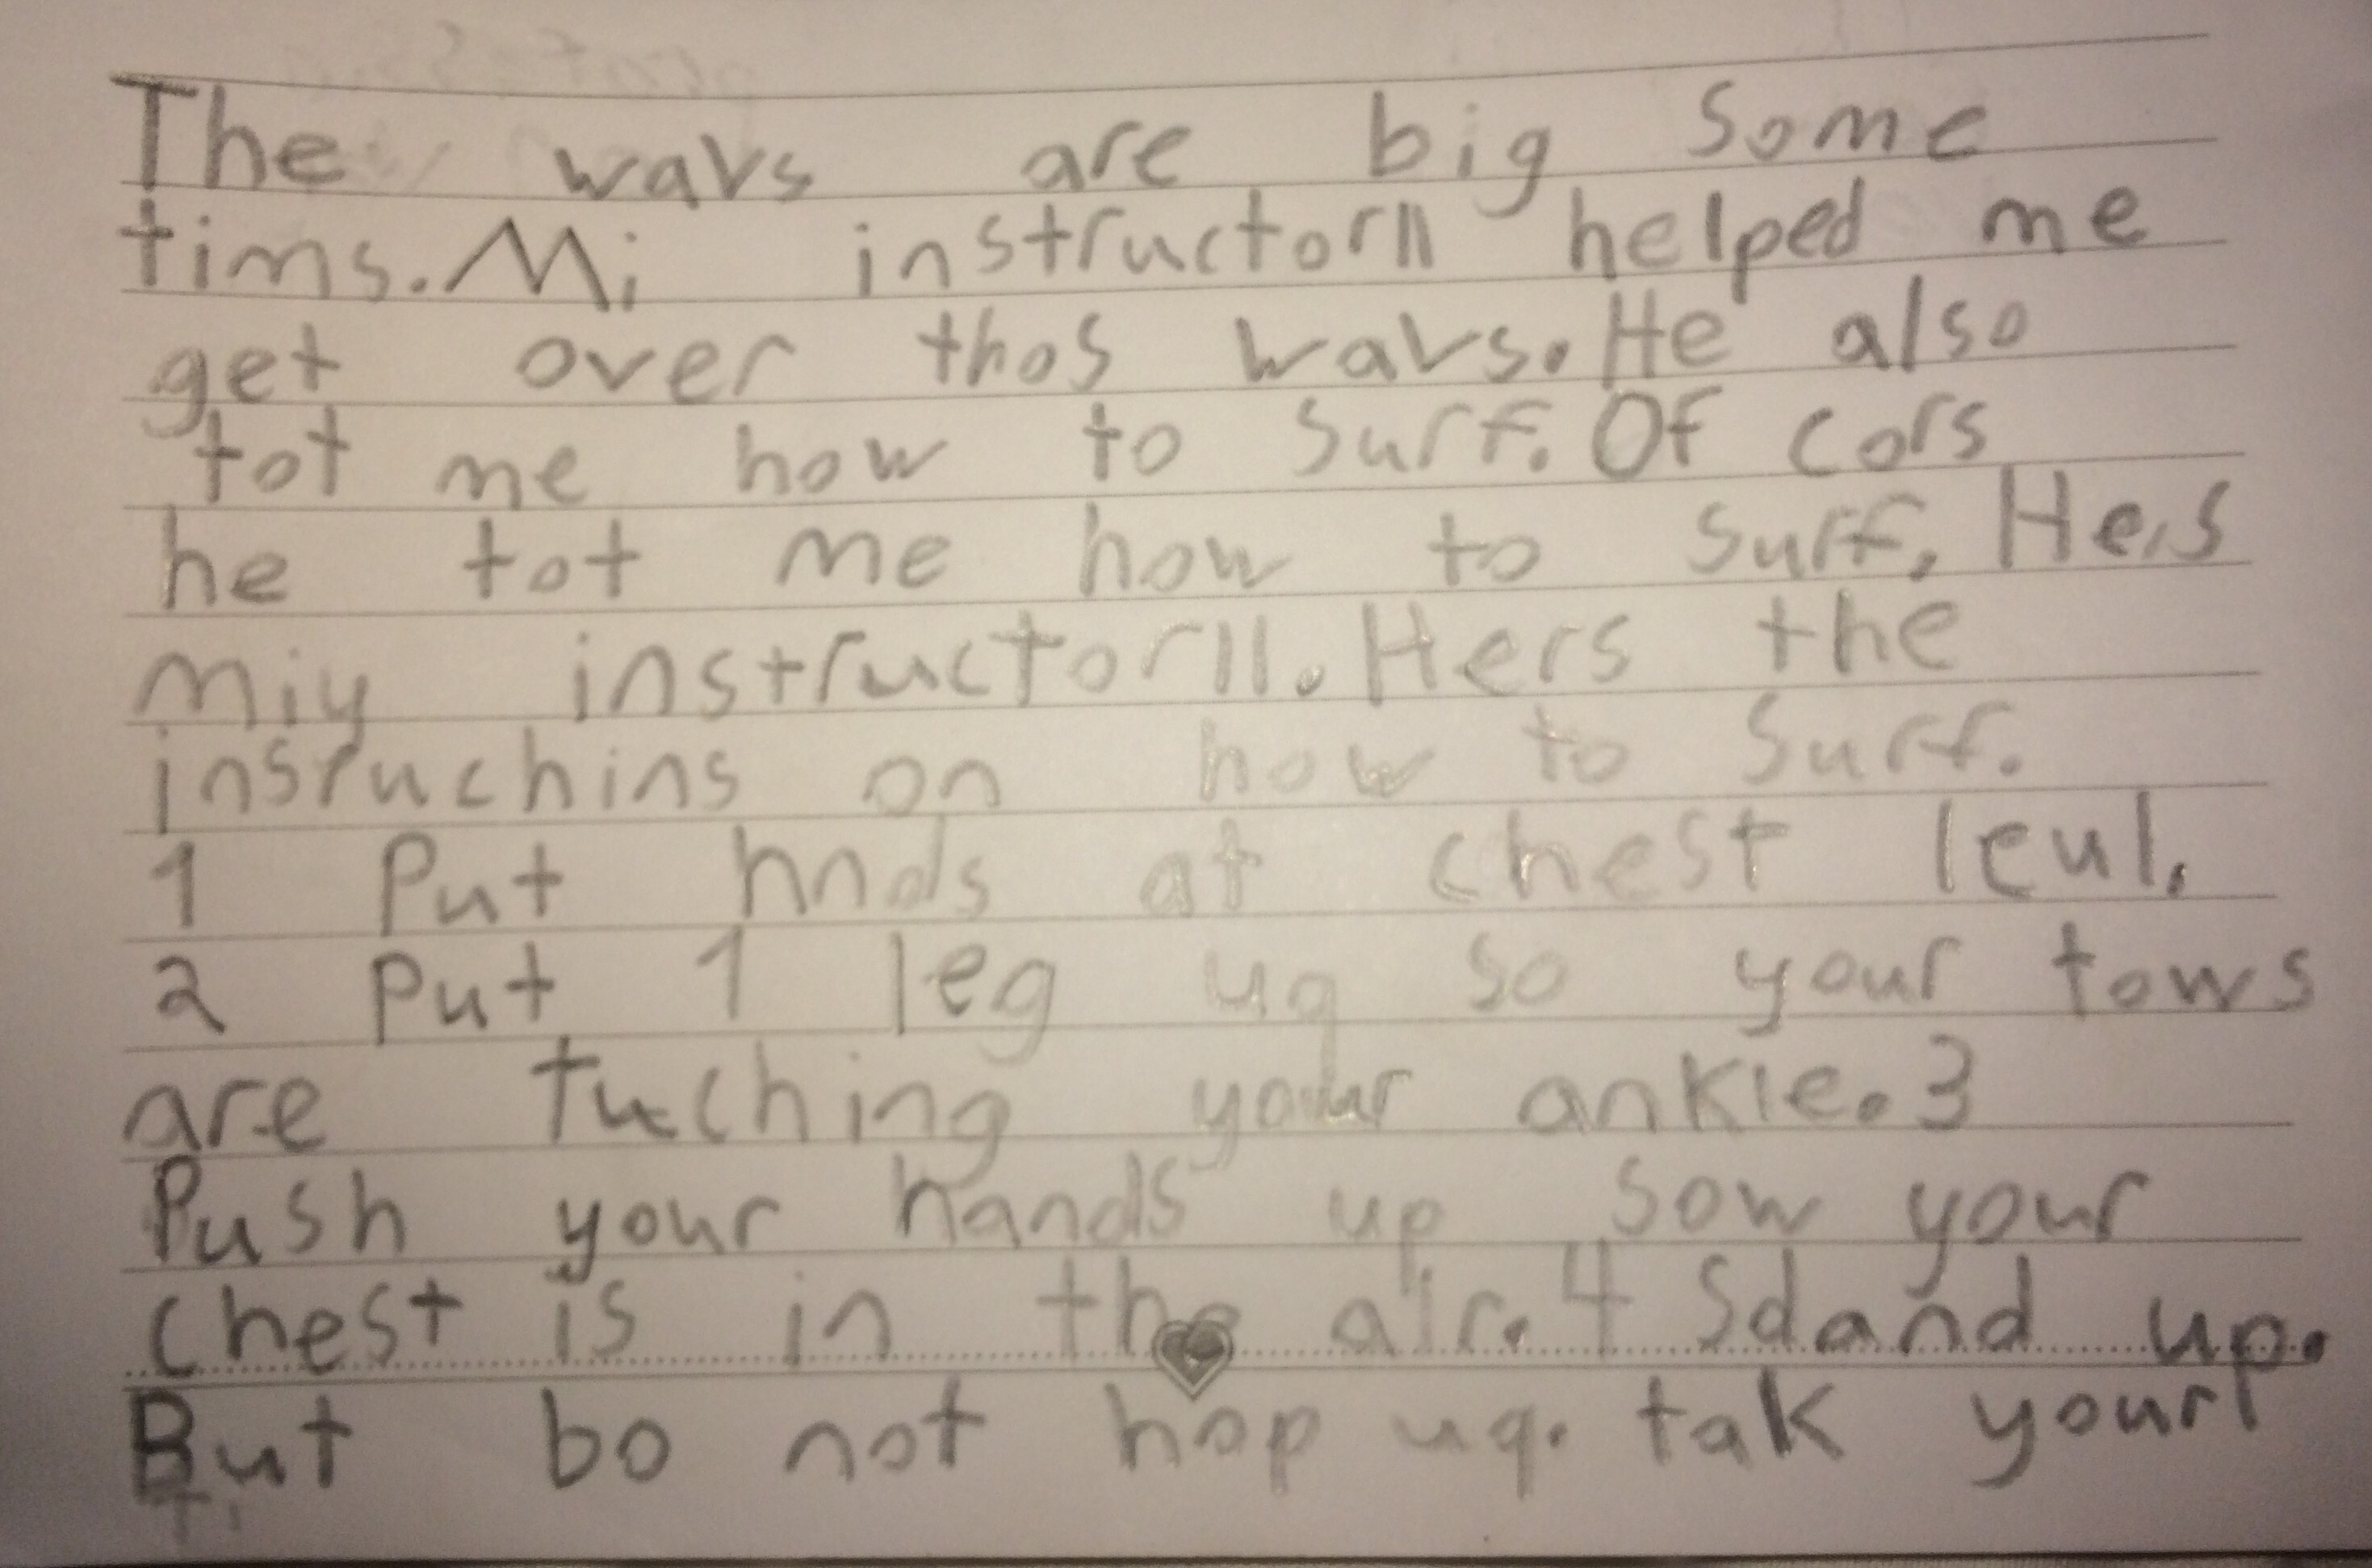 The wavs are big some
tims. Mi instructorll helped me
get over thos wavs. He also
tot me how to surf. Of cors
he tot me how to surf, He,s
miy instructorll. Hers the
insruchins on how to surf.
1 Put hnds at chest leul.
2 Put 1 leg uq so your tows
are tuching your ankle. 3
Push your hands up sow your
chest is in the air. 4 Sdand up.
But bo not hop uq. tak your